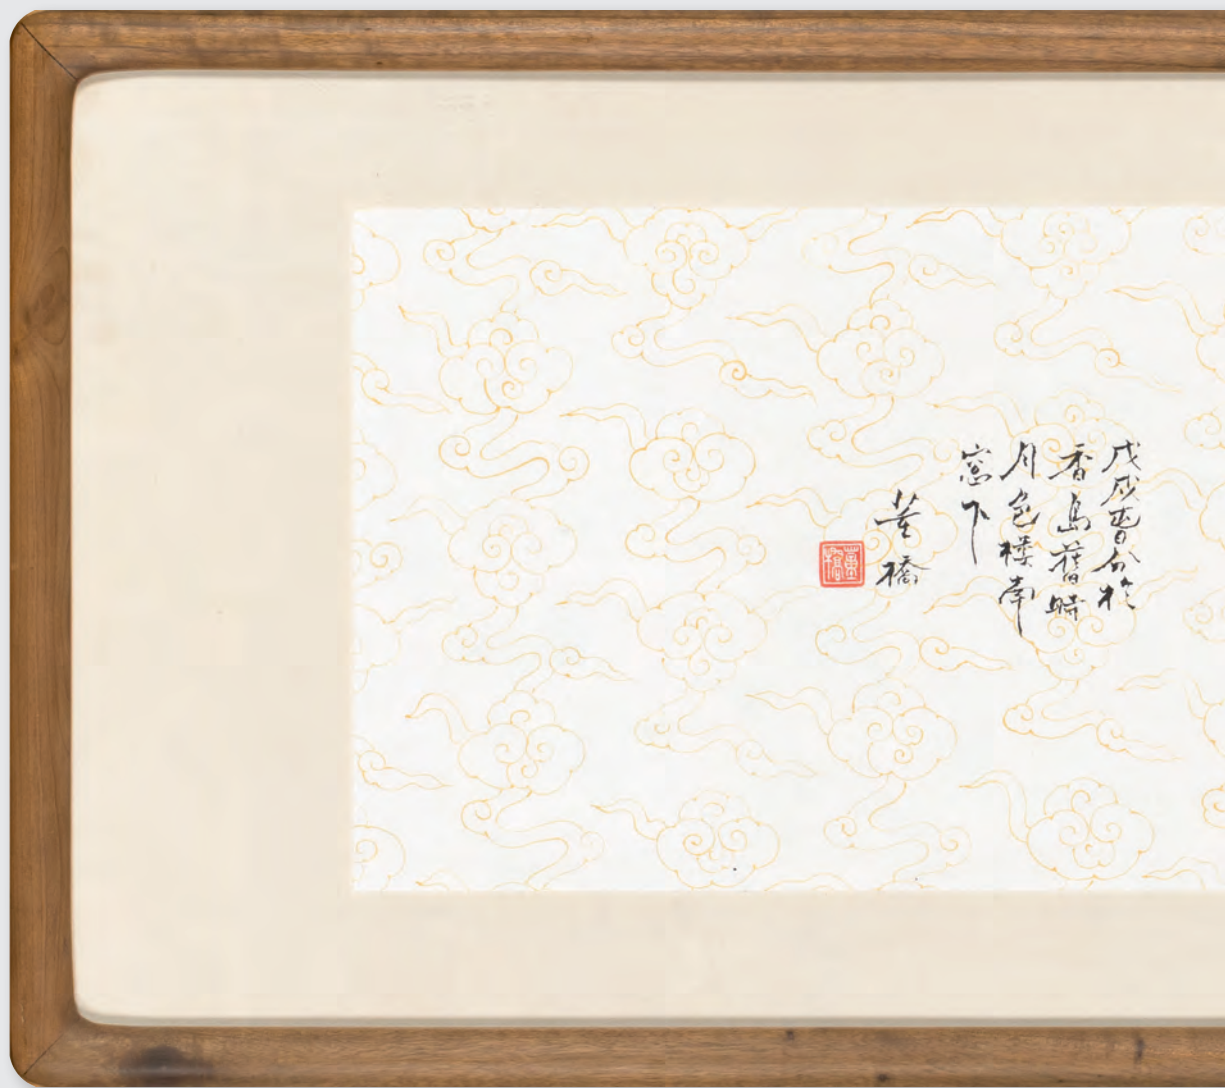 戊戌春分於
香島舊時
月色樓南
窓下
董橋
董橋